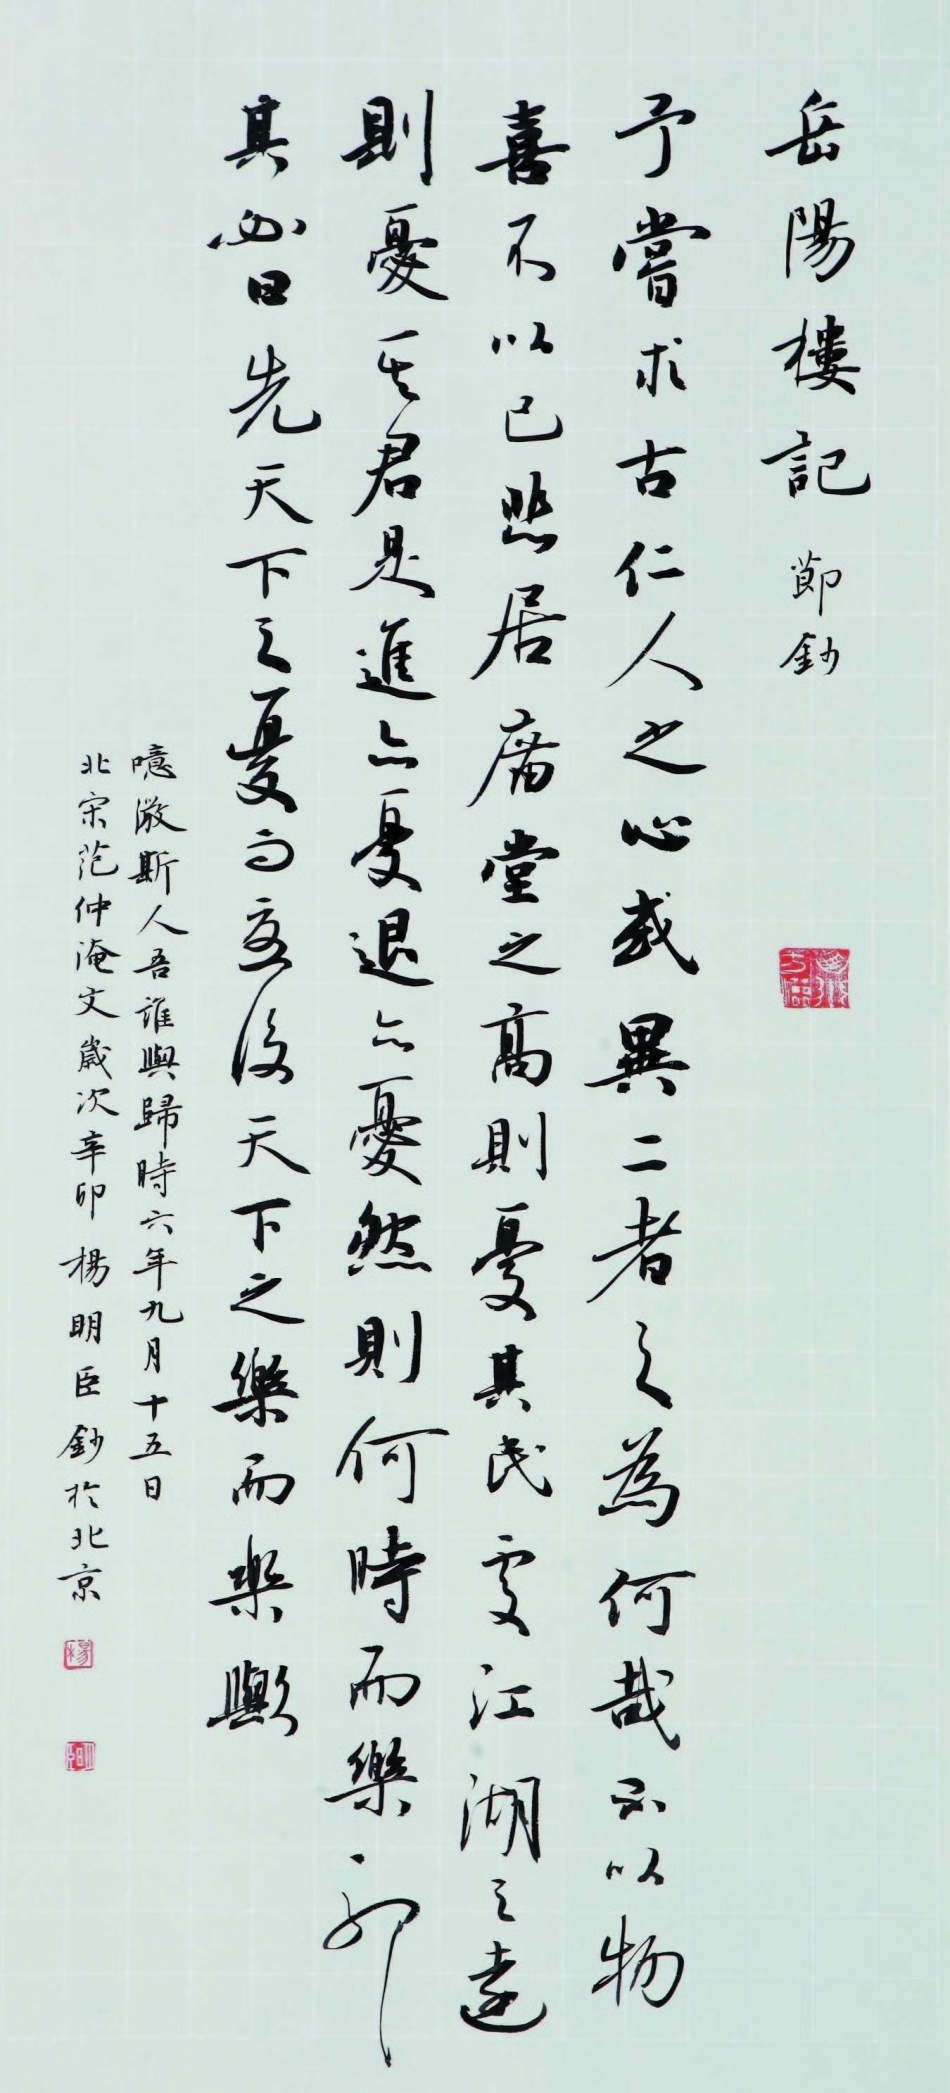 岳陽樓記 節鈔
予嘗求古仁人之心或異二者之為何哉不以物
喜不以己悲居庿堂之高則憂其民處江湖之遠
則憂其君是進亦憂退亦憂然則何時而樂耶
其必曰先天下之憂而憂後天下之樂而樂歟
噫微斯人吾誰與歸時六年九月十五日
北宋范仲淹文歲次辛卯楊明臣鈔於北京
楊